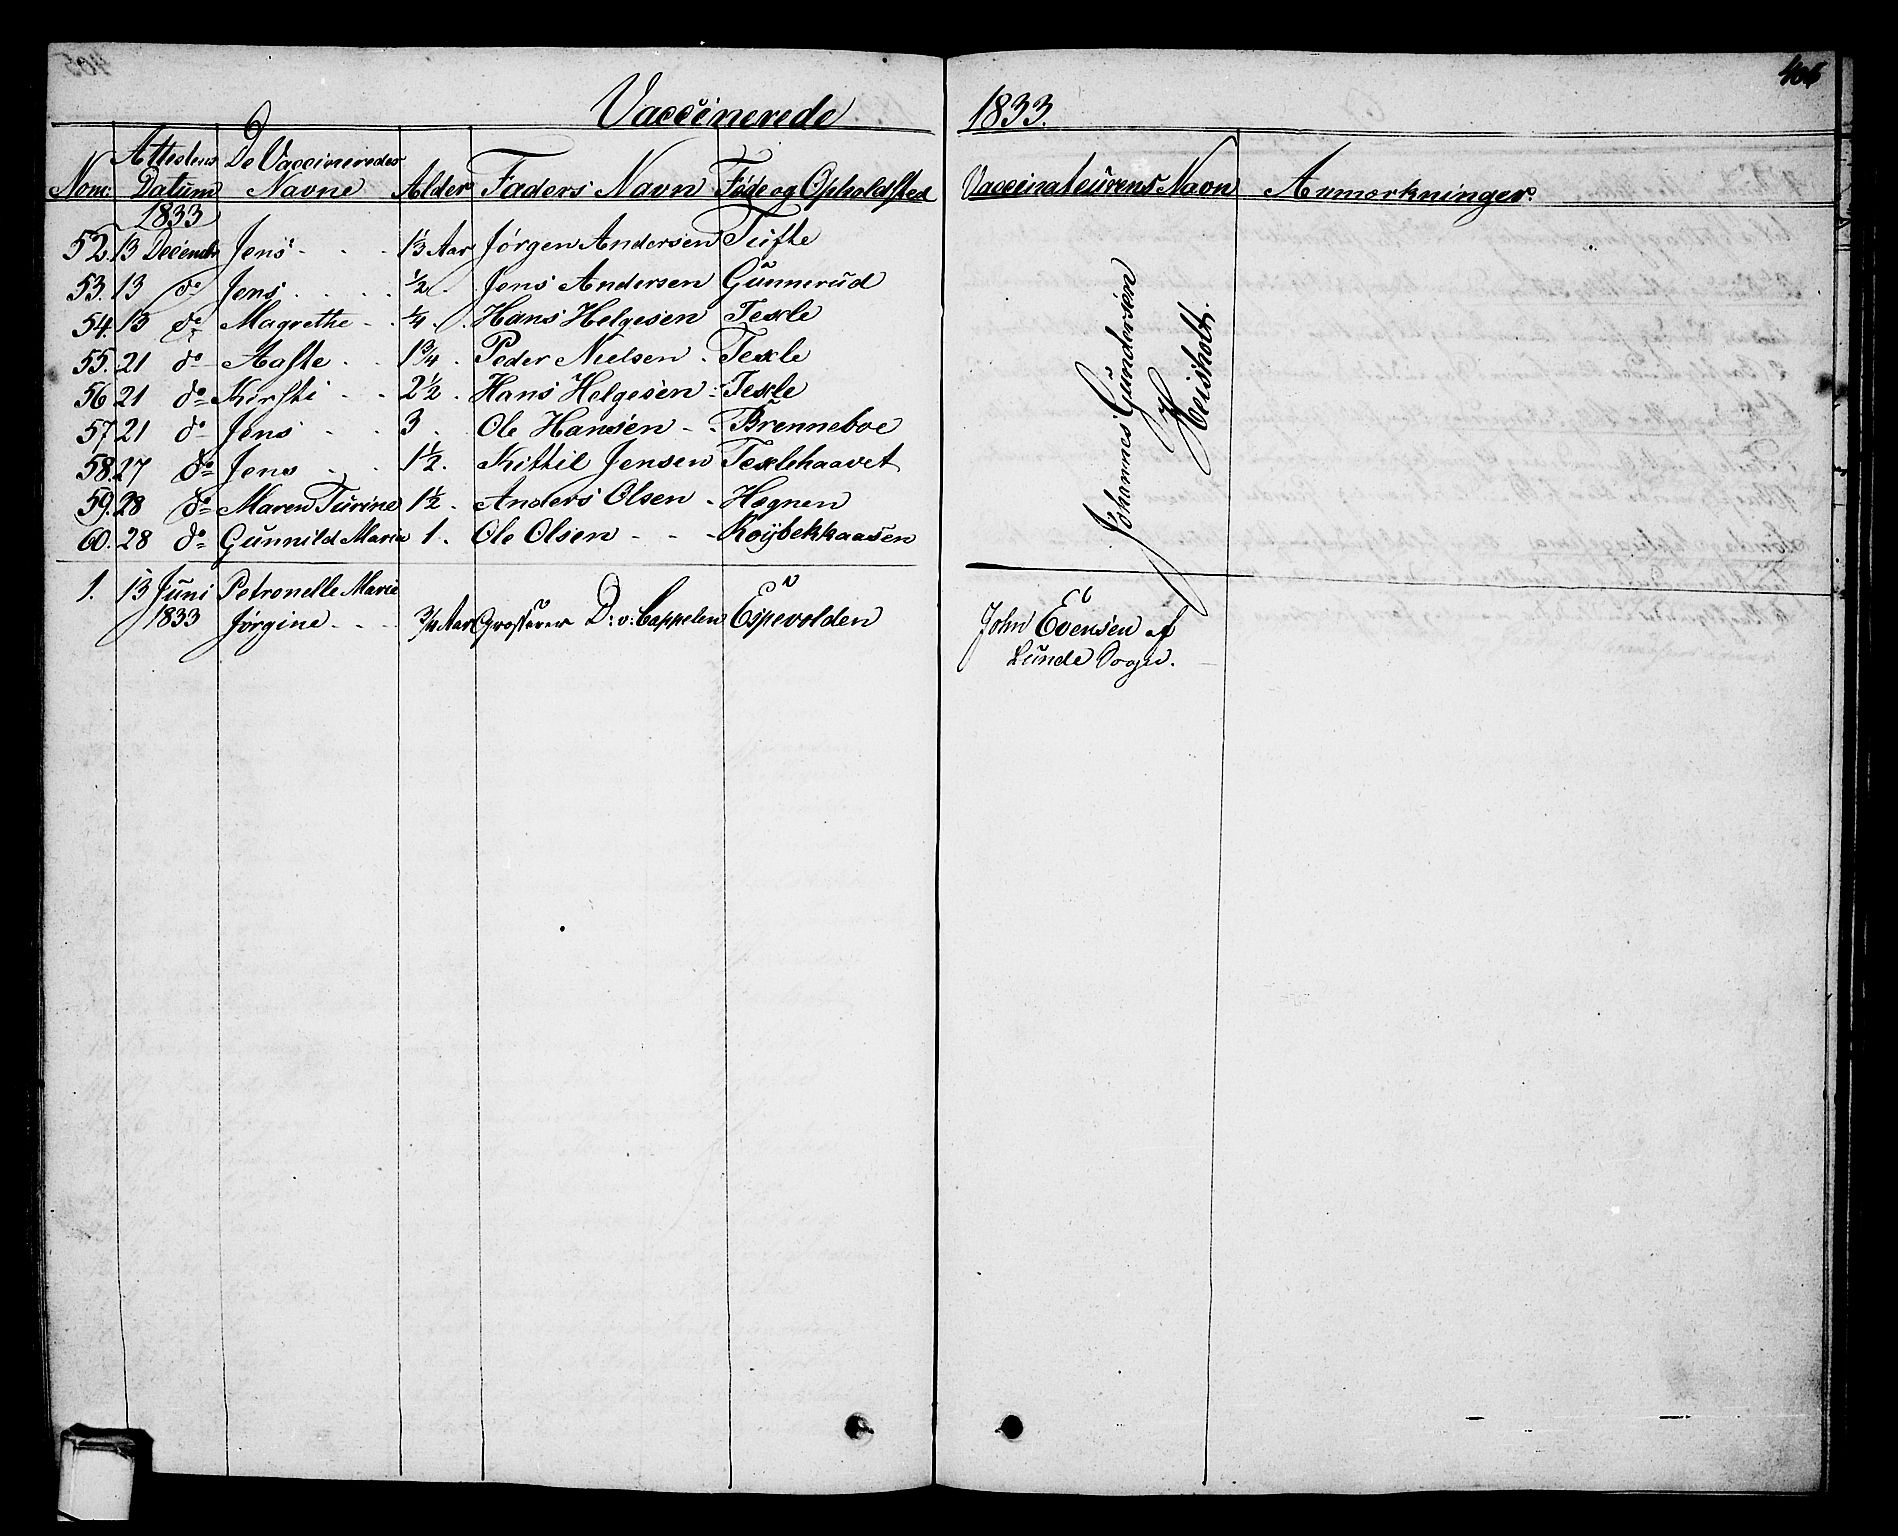 406
Vaccinerede 1833.
Nom: Attestens Datum De Vaccineredes Navne Alder Faders Navn Føde og Opholdsted Vaccinateurens Navn Anmærkninger
1833
52. 13 Decemb. Jens - - - 1 1/3 Aar Jørgen Andersen Tufte
53. 13 do Jens . . . . 1/2 . Jens Andersen Gunnerud
54. 13 do Magrethe - . 1/4 . Hans Helgesen Texle
55. 21 do Aaste . . 1 3/4 . Peder Nielsen . Texle
56 21 do Kirsti - . 2 1/2 . Hans Helgesen - Texle
57 21 do Jens - . 3 . Ole Hansen - . Brenneboe
58. 27 do Jens - . 1 1/2 . Kittil Jensen Texlehaavet
59. 28 do Maren Turine 1 1/2 . Anders Olsen - Hegnen
60. 28 do Gunnild Maria 1 . Ole Olsen - - - Roÿbekkaasen
Johannes Gundersen
Heisholt.
1. 13 Juni Petronelle Marie
1833 Jørgine - - - 3/4 Aar Grosserer D: v: Cappelen Espevolden
John Evensen af
Lunde Sogn.